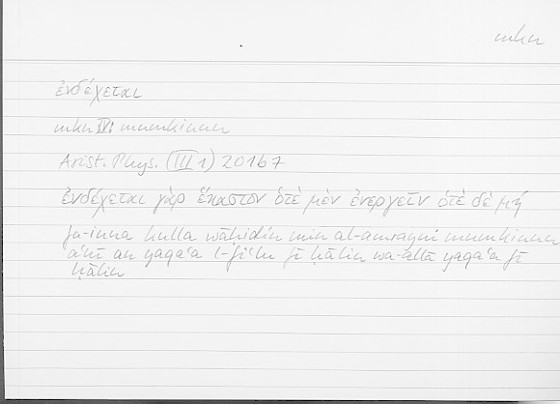 mkn
ἐνδέχεται
mkn IV: mumkinun
Arist. Phys. (III 1) 201b7
ἐνδέχεται γὰρ ἕκαστον ὁτὲ μὲν ἐνεργεῖν ὁτὲ δὲ μή
fa-inna kulla wāḥidin min al-amrayni mumkinun
aʿnī an yaqaʿa l-fiʿlu fī ḥālin wa-allā yaqaʿa fī
ḥālin